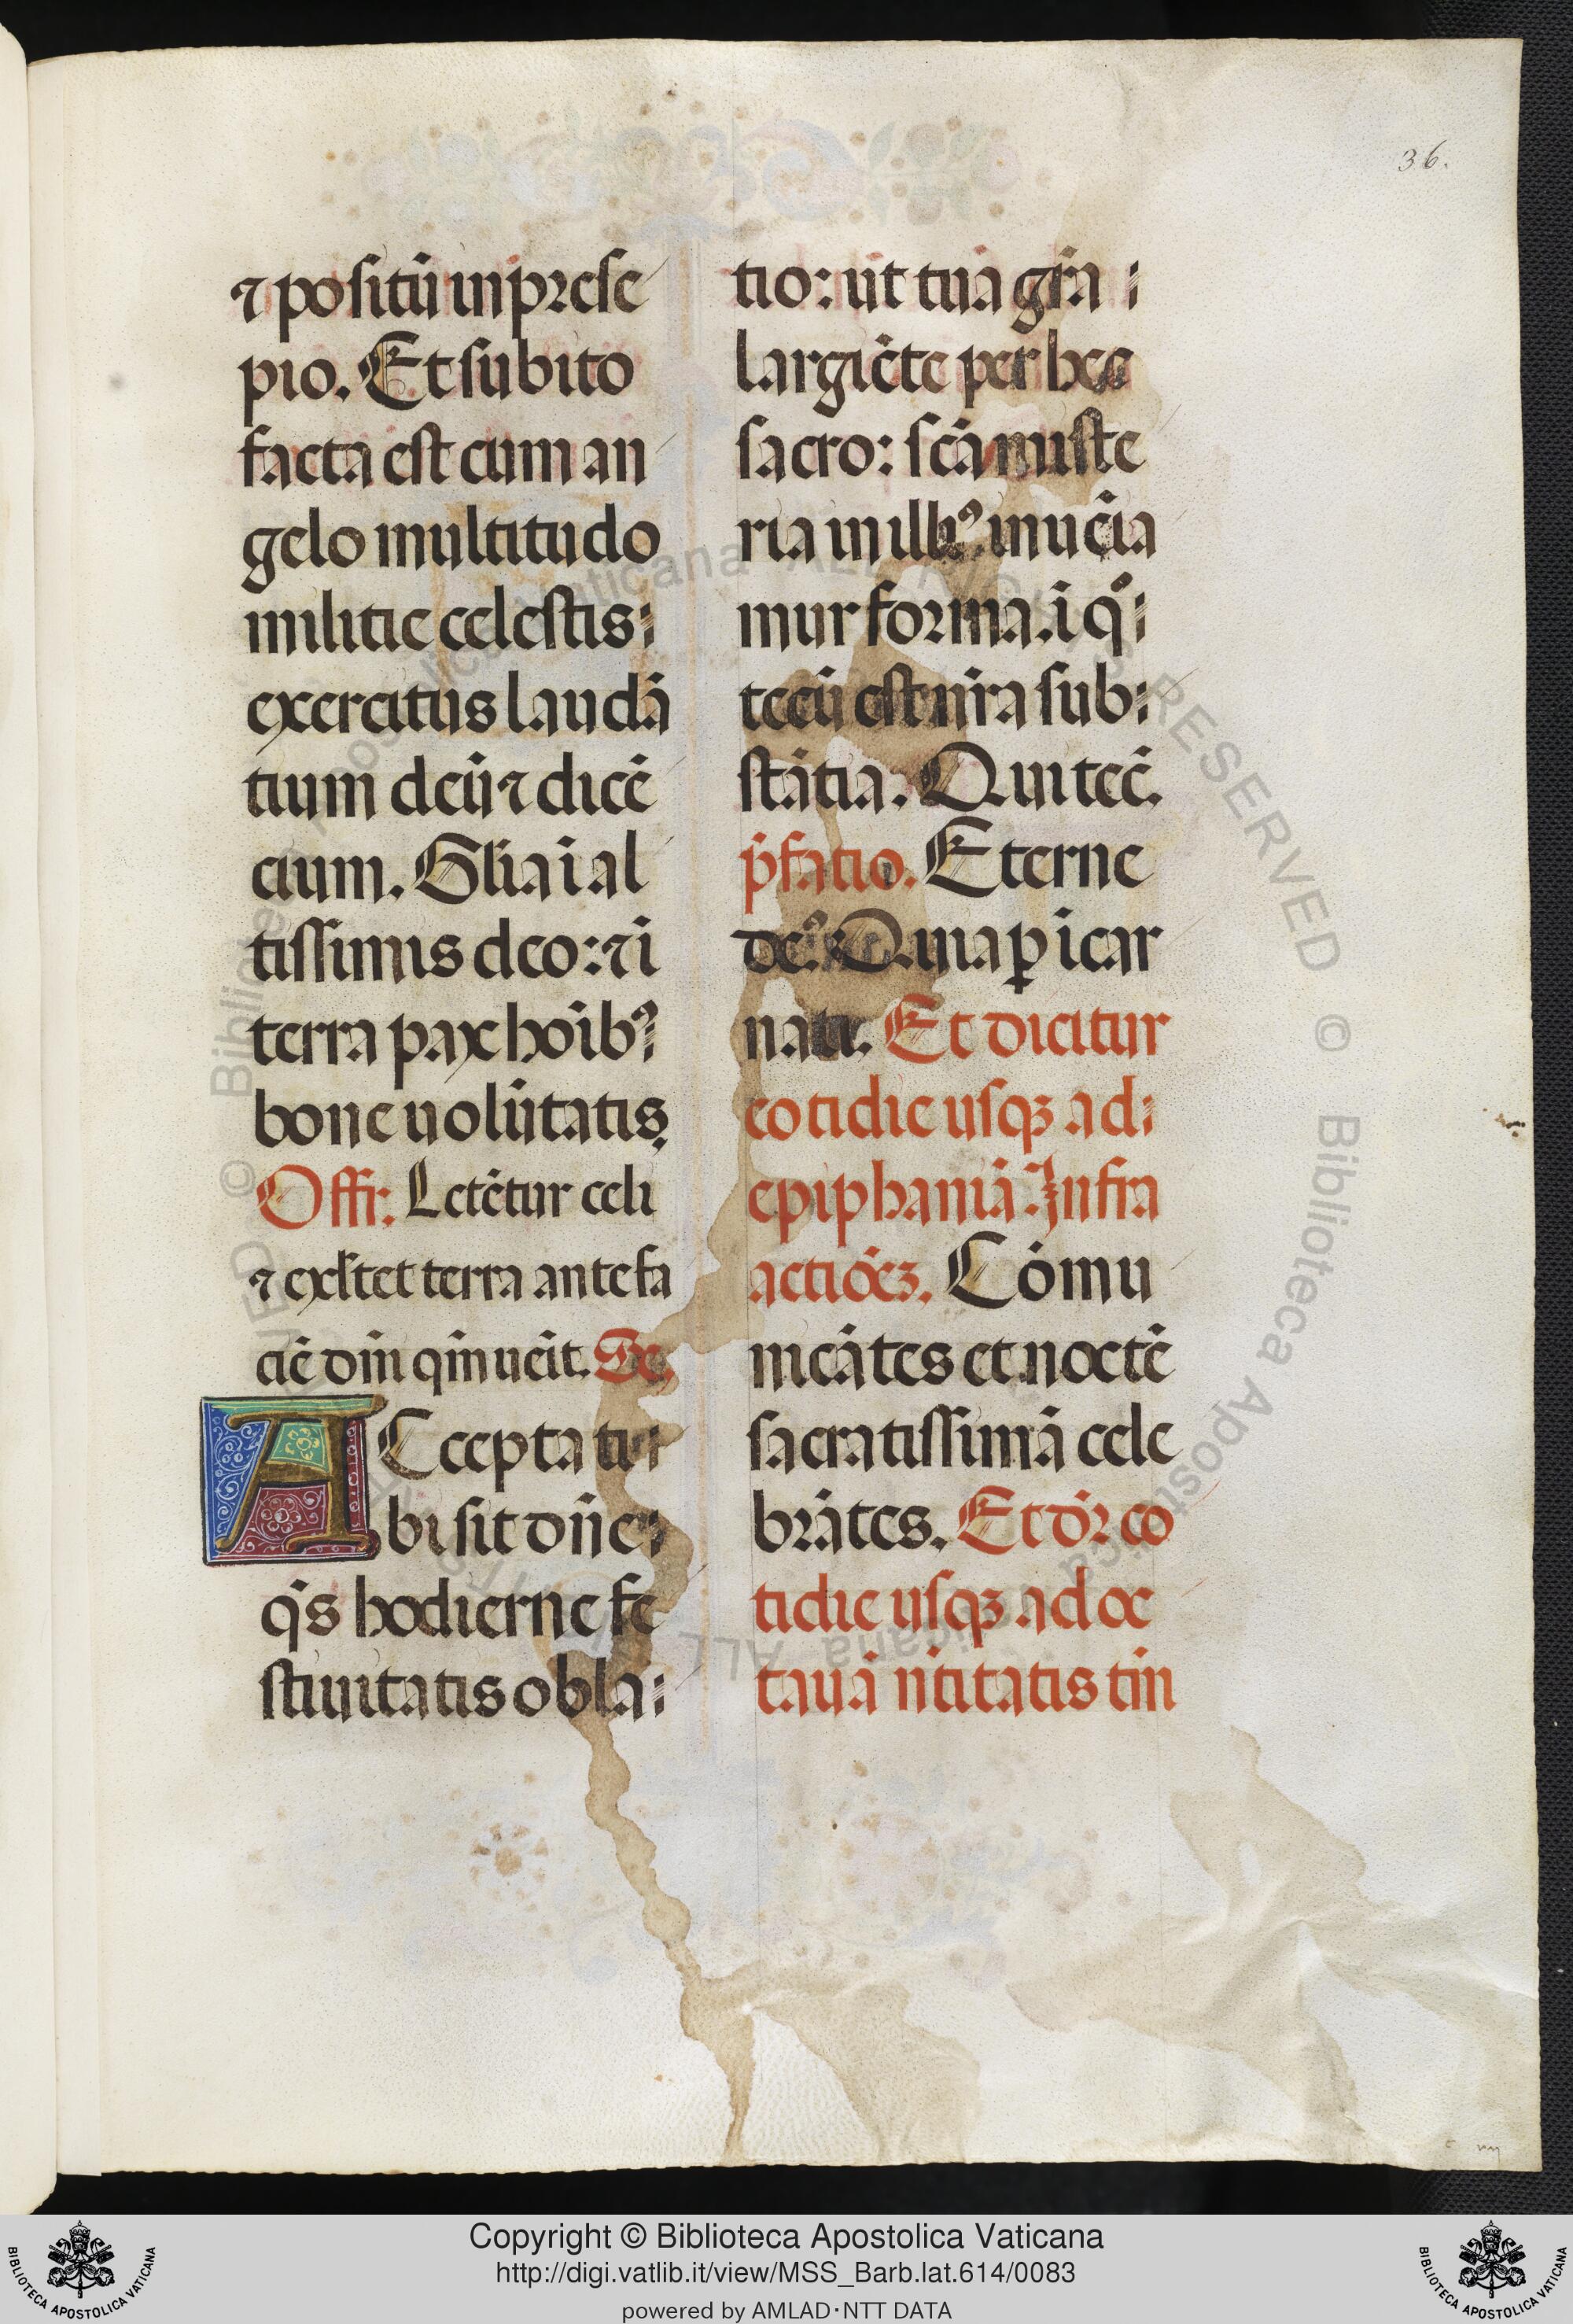 36.
⁊ positū in prese
pio. Et subito
facta est cum an
gelo multitudo
militie celestis
exercitus laudā
tium deū ⁊ dicē
cium. Gl̄ia ī al
tissimis deo: ⁊ ī
terra pax hoībꝰ
bone uolūtatis.
Offr. Letētur celi
⁊ exl̄tet terra ante fa
ciē dn̄i qm̄ uēit. Se.
ACcepta ti
bi sit dn̄e
qs̄ hodierne fe
stiuitatis obla
tio: ut tua gr̄a
largiēte per hec
sacro: sc̄a miste
ria in illiꝰ inuēia
mur forma. ī qᵒ
tecū est nr̄a sub
stātia. Qui tec̄.
p̄fatio. Eterne
deꝰ. Quia ꝑ īcar
nati. Et dicitur
cotidie usqꝫ ad
epiphaniā. Infra
actiōeꝫ. Cōmu
nicātes et noctē
sacratissimā cele
brātes. Et dr̄ co
tidie usqꝫ ad oc
tauā nt̄itatis tm̄
Copyright © Biblioteca Apostolica Vaticana
http://digi.vatlib.it/view/MSS_Barb.lat.614/0083
powered by AMLAD·NTT DATA
BIBLIOTECA APOSTOLICA VATICANA
BIBLIOTECA APOSTOLICA VATICANA